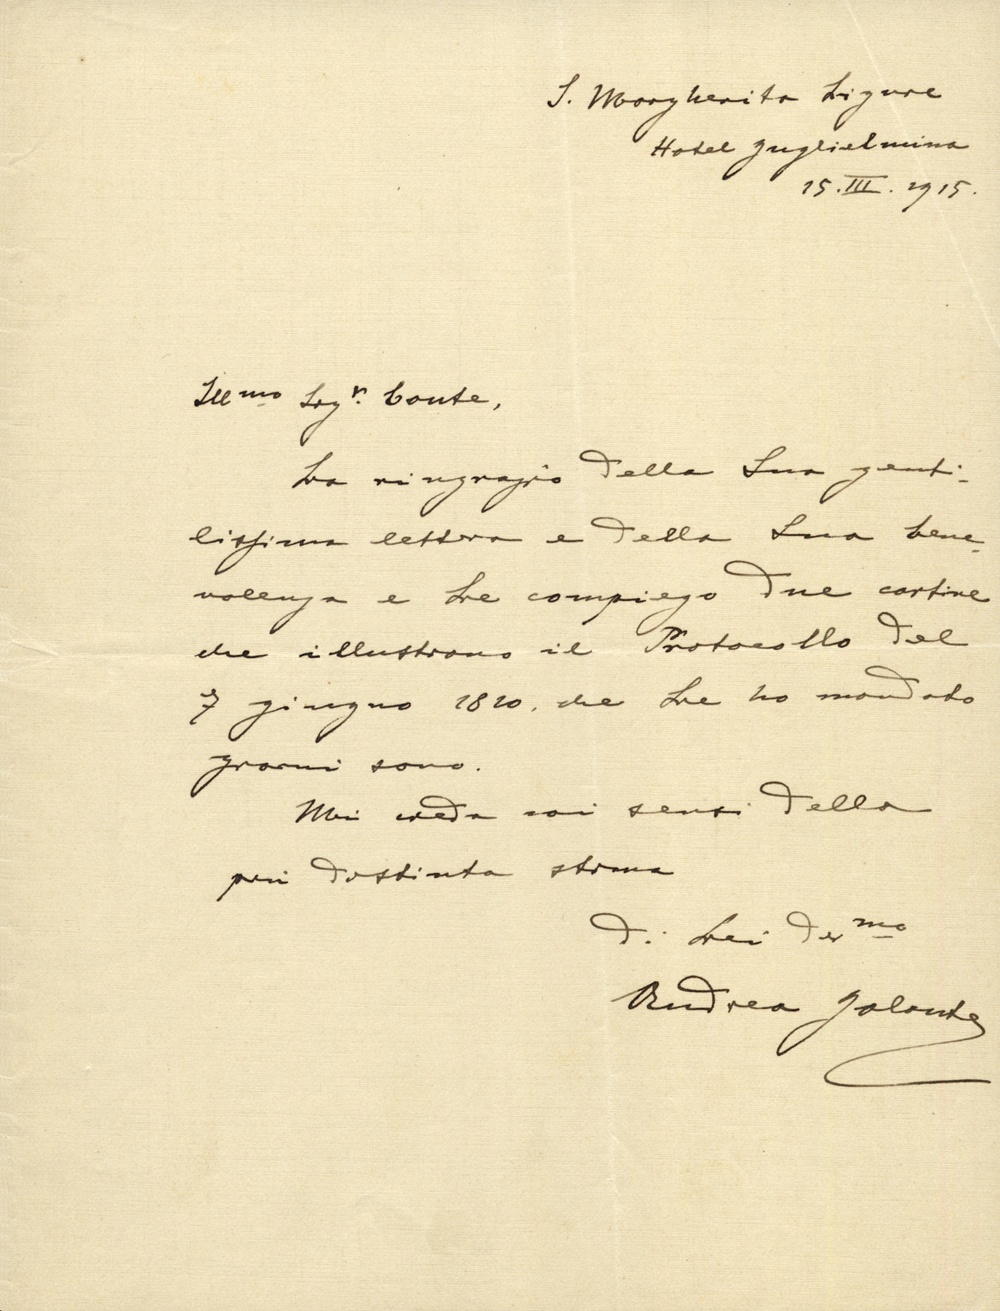 S. Margherita Ligure
Hotel Guglielmina
15.III.1915.
Ill.mo Sig.r Conte,
La ringrazio della Sua genti-
lissima lettera e della Sua bene-
volenza e Le compiego due cartine
che illustrano il Protocollo del
7 giugno 1810. che Le ho mandato
giorni sono.
Mi creda coi sensi della
più distinta stima
di Lei dev.mo
Andrea Galante